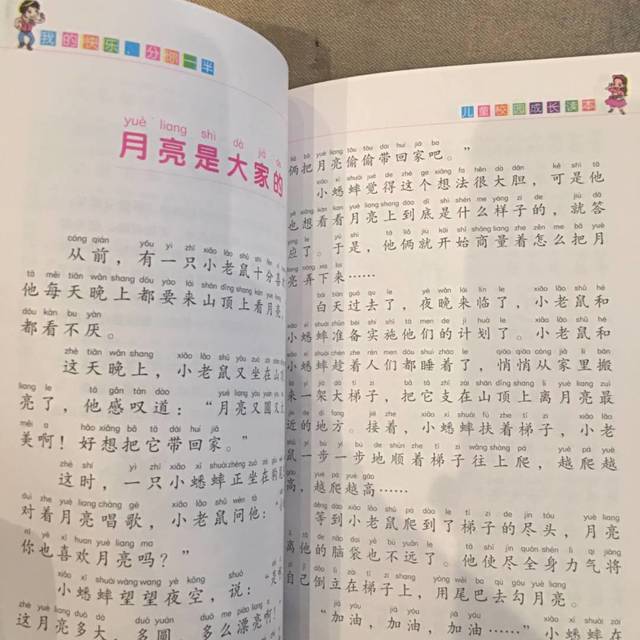 我的快乐,分你一半
yuè liang shì dà jiā de
月亮是大家的
cóng qián yǒu yì zhī xiǎo lǎo shǔ shí fēn
从前,有一只小老鼠十分喜
tā měi tiān wǎn shang dōu yào lái shān dǐng shang kàn yuè liang
他每天晚上都要来山顶上看月亮,
dōu kàn bu yàn
都看不厌。
zhè tiān wǎn shang xiǎo lǎo shǔ yòu zuò zài shān
这天晚上,小老鼠又坐在山
liang le tā gǎn tàn dào yuè liang yòu yuán yòu
亮了,他感叹道:“月亮又圆又
měi a hǎo xiǎng bǎ tā dài huí jiā
美啊!好想把它带回家。”
zhè shí yì zhī xiǎo xī shuài zhèng zuò zài
这时,一只小蟋蟀正坐在
duì zhe yuè liang chàng gē xiǎo lǎo shǔ wèn tā
对着月亮唱歌,小老鼠问他:“
nǐ yě xǐ huan yuè liang ma
你也喜欢月亮吗?”
xiǎo xī shuài wàng wang yè kōng shuō
小蟋蟀望望夜空,说:“是
zhè yuè liang duō dà duō yuán duō me piào liang a
这月亮多大、多圆、多么漂亮啊!
儿童校园成长读本
liǎ bǎ yuè liang tōu tōu dài huí jiā ba
俩把月亮偷偷带回家吧。”
xiǎo xī shuài jué de zhè ge xiǎng fǎ hěn dà dǎn kě shì tā
小蟋蟀觉得这个想法很大胆,可是他
yě xiǎng kàn kan yuè liang shàng dào dǐ shì shén me yàng zi de jiù dā
也想看看月亮上到底是什么样子的,就答
yìng le yú shì tā liǎ jiù kāi shǐ shāng liang zhe zěn me bǎ yuè
应了。于是,他俩就开始商量着怎么把月
liang nòng xià lái
亮弄下来……
bái tiān guò qu le yè wǎn lái lín le xiǎo lǎo shǔ hé
白天过去了,夜晚来临了,小老鼠和
xiǎo xī shuài zhǔn bèi shí shī tā men de jì huà le xiǎo lǎo shǔ hé
小蟋蟀准备实施他们的计划了。小老鼠和
xiǎo xī shuài chèn zhe rén men dōu shuì zháo le qiāo qiāo cóng jiā li bān
小蟋蟀趁着人们都睡着了,悄悄从家里搬
lái yí jià dà tī zi bǎ tā zhī zài shān dǐng shang lí yuè liang zuì
来一架大梯子,把它支在山顶上离月亮最
jìn de dì fang jiē zhe xiǎo xī shuài fú zhe tī zi xiǎo lǎo
近的地方。接着,小蟋蟀扶着梯子,小老
shǔ yí bù yí bù de shùn zhe tī zi wǎng shàng pá yuè pá yuè
鼠一步一步地顺着梯子往上爬,越爬越
gāo yuè pá yuè gāo
高,越爬越高……
děng dào xiǎo lǎo shǔ pá dào le tī zi de jìn tóu yuè liang
等到小老鼠爬到了梯子的尽头,月亮
lí tā de nǎo dai yě bù yuǎn le tā shǐ jìn quán shēn lì qi jiāng
离他的脑袋也不远了。他使尽全身力气将
zì jǐ dào lì zài tī zi shang yòng wěi ba qù gōu yuè liang
自己倒立在梯子上,用尾巴去勾月亮。
jiā yóu jiā yóu jiā yóu
“加油,加油,加油……”小蟋